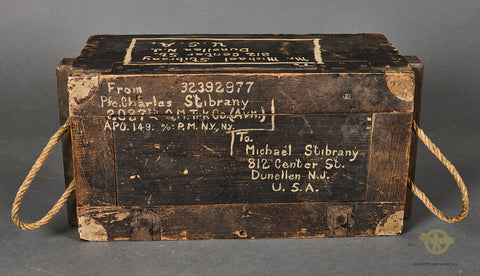 Mr. Michael Stibrany
812 Center St.
Dunellen N.J.
U.S.A.
From 32392977
Pfc. Charles Stibrany
Q.M. Trk Co. (Avn.)
APO. 149. %: P.M. N.Y, N.Y.
To
Michael Stibrany
812 Center St.
Dunellen N.J.
U.S.A.